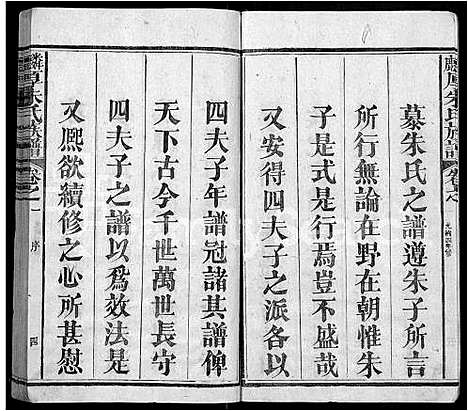 麟厚朱氏族譜
卷之
光緒四年修
慕朱氏之譜遵朱子所言
所行無論在野在朝惟朱
子是式是行焉豈不盛哉
又安得四夫子之派各以
四夫子年譜冠諸其譜俾
天下古今千世萬世長守
四夫子之譜以爲效法是
又熙欲續修之心所甚慰
麟厚朱氏族譜
卷之一
序
四